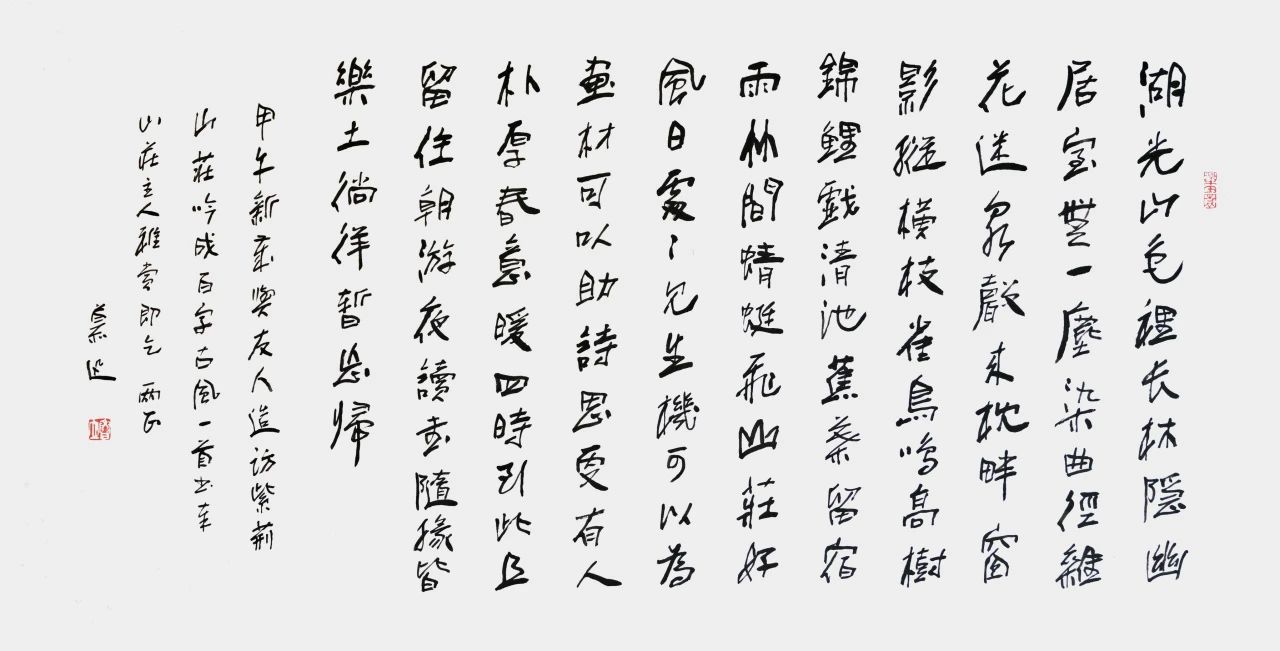 湖光山色裡长林隱幽
居室無一塵染曲徑雜
花迷泉聲来枕畔窗
影縱横枝雀鳥鳴高樹
錦鯉戲清池蕉葉留宿
雨林間蜻蜓飛山莊好
風日處〻見生機可以為
畫材可以助詩思更有人
朴厚春意暖四時到此且
留住朝游夜讀書隨緣皆
樂土徜徉暫忘歸
甲午新歲與友人造访紫荊
山莊吟成百字古風一首书奉
山莊主人雅赏即乞 兩正